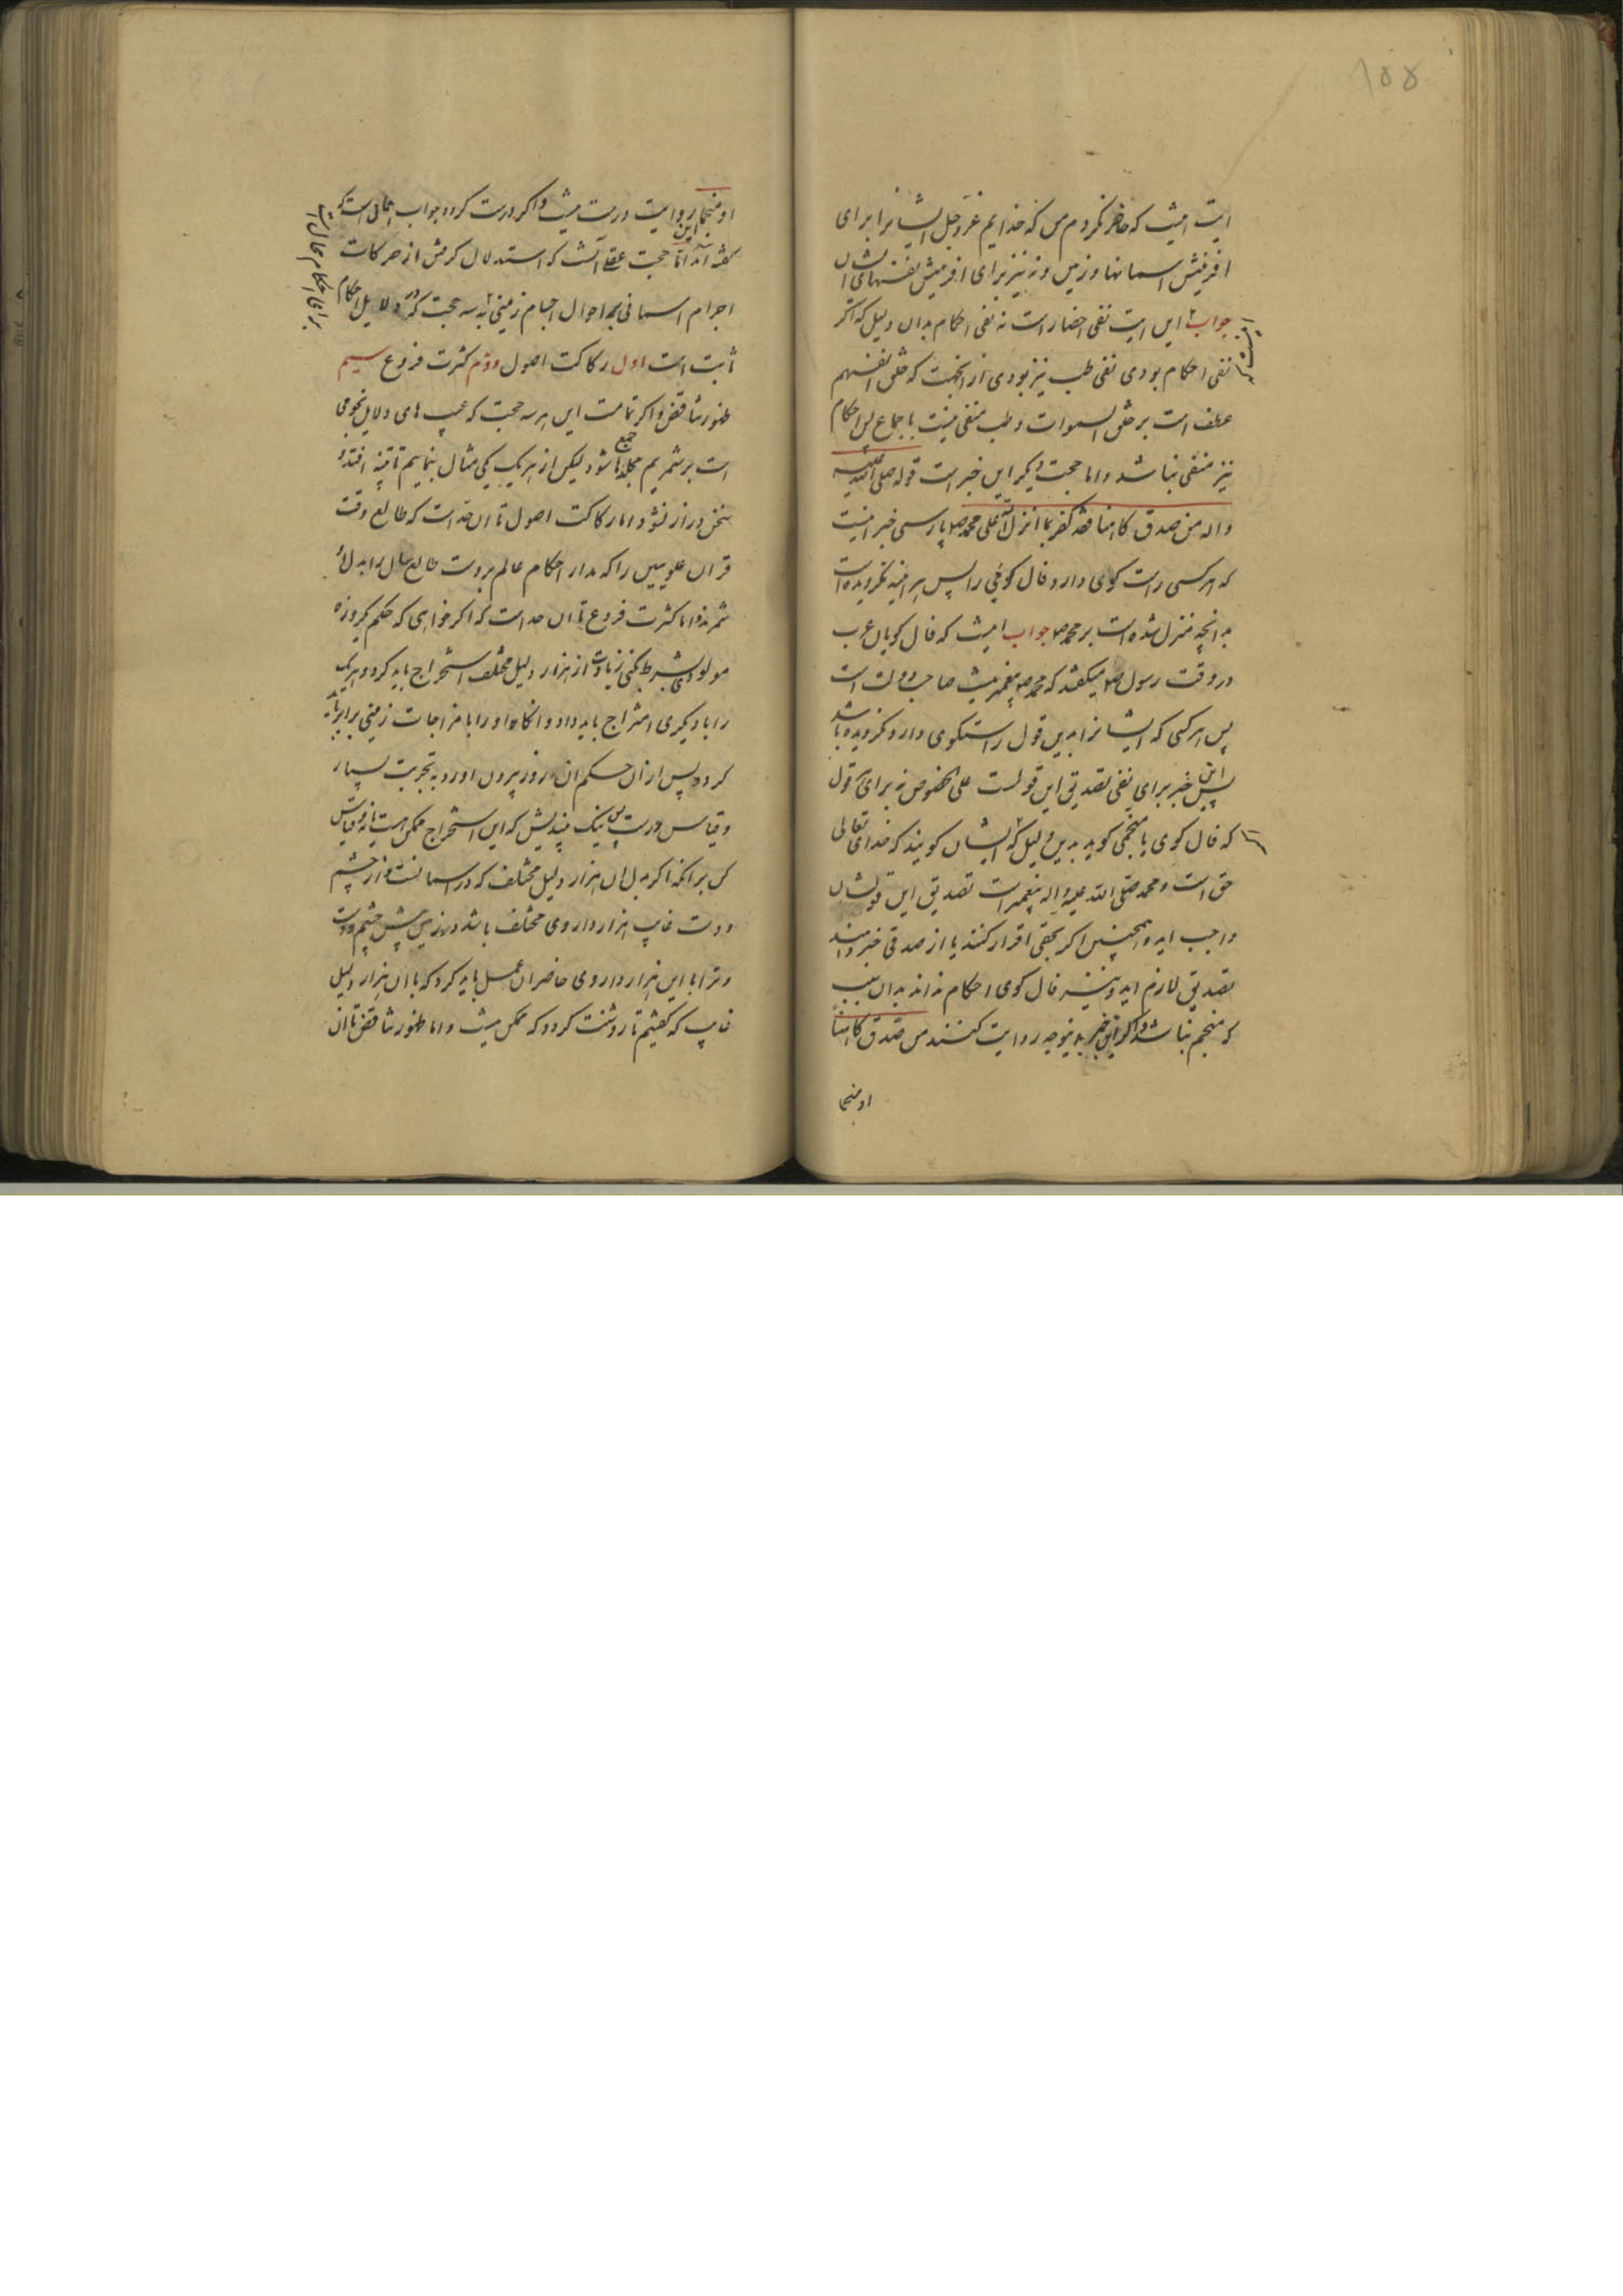 ۱۵۵
ایت اینست که حاضر نکردم من که خدایم عز و جل ایشانرا برای
افرینش اسمانها و زمین و نه نیز برای افرینش نفسهای ایشان
جواب این ایت نفی احضار است نه نفی احکام بدان دلیل که اگر
نفی احکام بودی نفی طب نیز بودی از انجهت که خلق انفسهم
عطف است بر خلق السموات و طب منفی نیست باجماع پس احکام
نیز منفی نباشد و اما حجت دیگر این خبر است قوله صلی الله علیه
واله من صدق کاهنا فقد کفر بما انزل الله علی محمد ص پارسی خبر اینست
که هر کسی راست کوی دارد فال کویی را پس هر اینه نکرویده است
بدانچه منزل شده است بر محمد ص جواب اینست که فال کویان عرب
در وقت رسول ص میگفتند که محمد ص پیغمبر نیست صاحب دولت است
پس هر کسی که ایشانرا بدین قول راستکوی دارد نکرویده باشد
پس این خبر برای نفی تصدیق این قولست علی الخصوص نه برای هر قول
که فال کوی یا منجمی کوید بدین دلیل که ایشان کویند که خدای تعالی
حق است و محمد صلی الله علیه واله پیغمبر است تصدیق این قولشان
واجب اید و همچنین اگر بحقی اقرار کنند یا از صدقی خبر دهند
تصدیق لازم اید و نیز فال کوی احکام نداند بدان سبب
که منجم نباشد و اگر این خبر بدینوجه روایت کنند من صدق کاهنا
او منجما
او منجما این روایت درست نیست و اگر درست کردد جواب همان است که
گفته اند اما حجت عقلی آنست که استدلال کرفتن از حرکات
اجرام اسمانی بر احوال اجسام زمینی به سه حجت که در دلایل احکام
ثابت است اول رکاکت اصول دوم کثرت فروع سیم
ظهور تناقض و اگر تمامت این هر سه حجت که عیب های دلایل نجومی
است برشمریم مجلدها جمع شود لیکن از هر یک یکی مثال بنماییم تا تنبیه افتد و
سخن دراز نشود اما رکاکت اصول تا ان حد است که طالع وقت
قران علویین را که مدار احکام عالم بروست طالع سال را بدل او
شمرند و اما کثرت فروع تا ان حد است که اگر خواهی که حکم یکروزه
مولودی بشرط کنی زیادت از هزار دلیل مختلف استخراج باید کرد و هر یک
را با دیگری امتزاج باید داد و انگاه او را با مزاجات زمینی برابر باید
کرد و پس از ان حکم ان روز بیرون اورد به تجربت بسیار
و قیاس درست پس نیک بیندیش که این استخراج ممکن هست یا نه و قیاس
کن برانکه اگر بدل ان هزار دلیل مختلف که در اسمانست و از چشم
و دست غایب هزار داروی مختلف باشد در زمین پیش چشم و دست
و ترا با این هزار داروی حاضر ان عمل باید کرد که با ان هزار دلیل
غایب که گفتیم تا روشنت کردد که ممکن نیست و اما ظهور تناقض تا ان